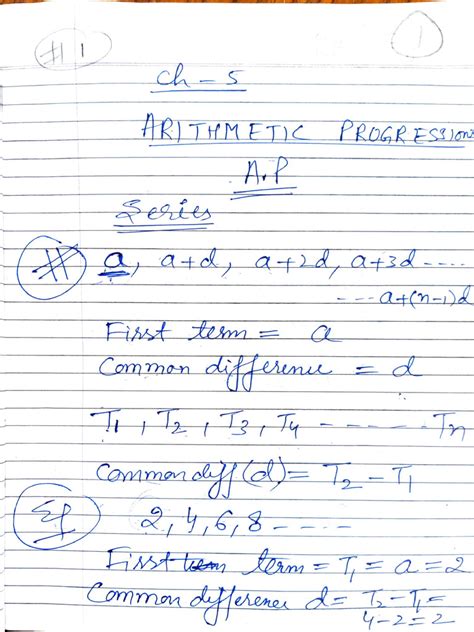 # 1
1
Ch - 5
ARITHMETIC PROGRESSIONS
A.P
Series
# a, a+d, a+2d, a+3d ----
--- a+(n-1)d
First term = a
Common difference = d
T1, T2, T3, T4 ------- Tn
Common diff (d) = T2 - T1
Eg 2, 4, 6, 8 ----
First term = T1 = a = 2
Common difference d = T2 - T1 =
4-2=2